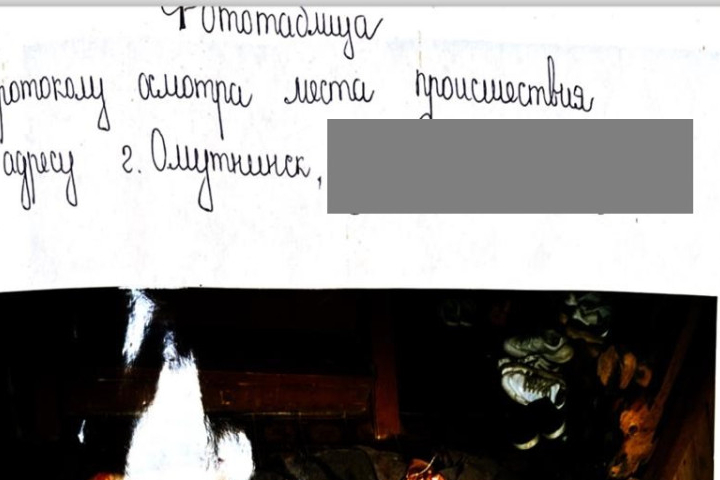 Фототаблица
ротоколу осмотра места происшествия
адресу г. Омутнинск,